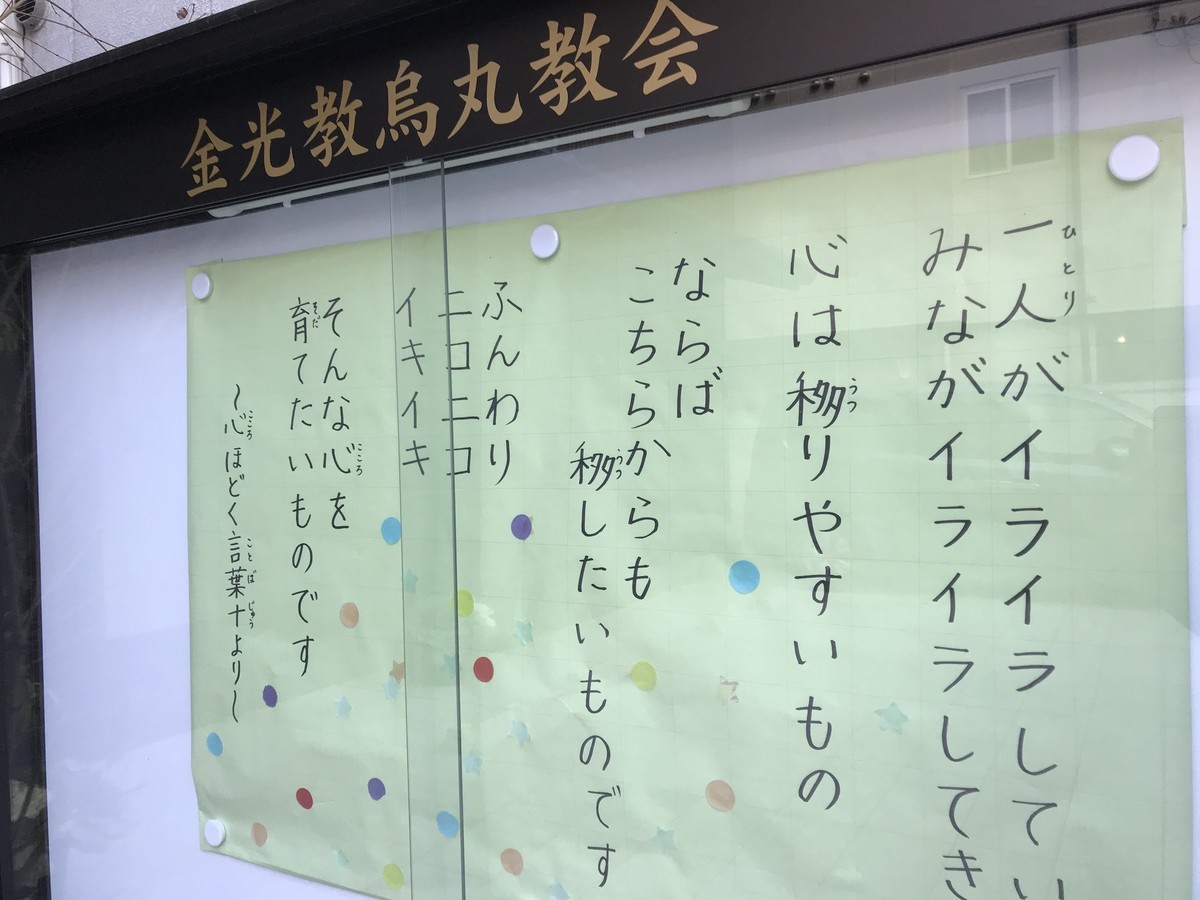 金光教烏丸教会
一人がイライラしてい
みながイライラしてき
心は移りやすいもの
ならば
こちらからも
移したいものです
ふんわり
ニコニコ
イキイキ
そんな心を
育てたいものです
〜心ほどく言葉十より〜